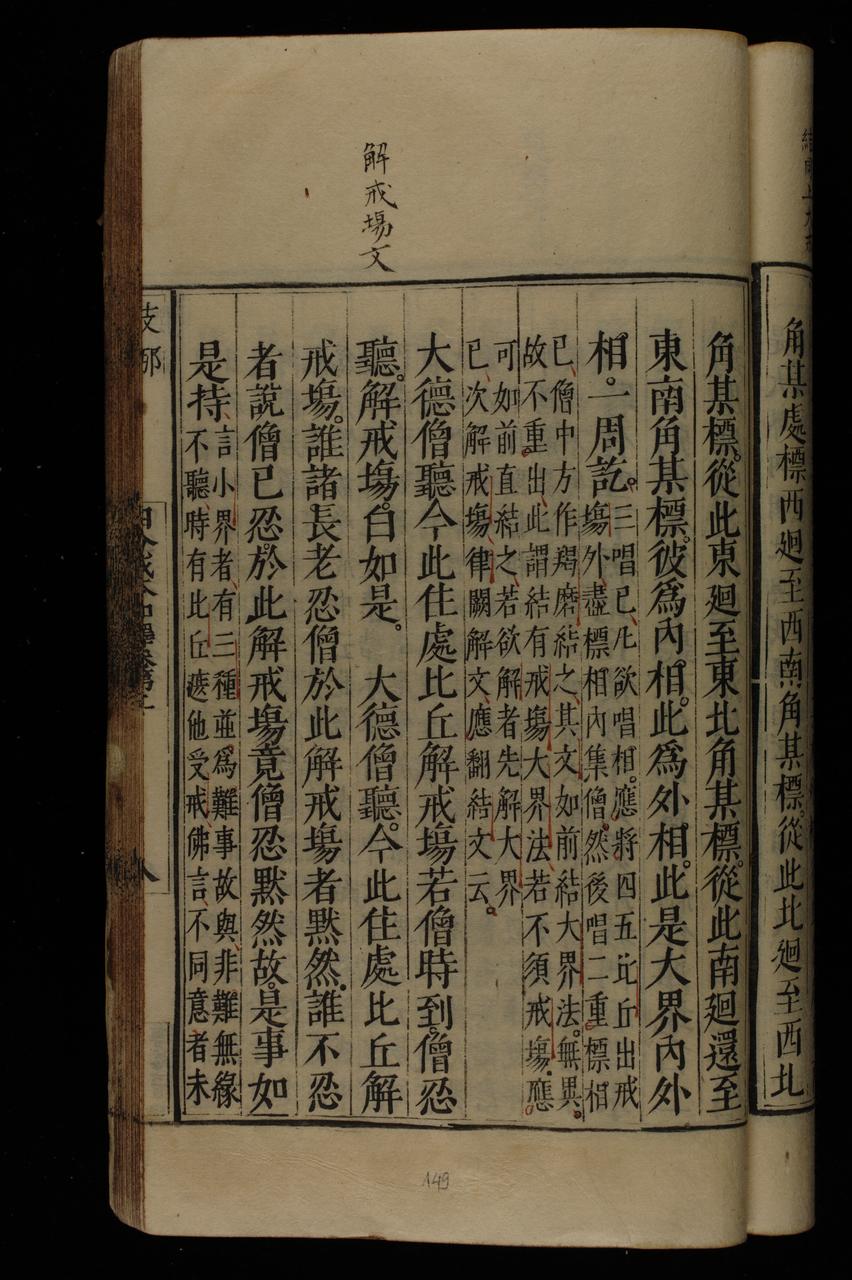 角某處標西廻至西南角某標從此北廻至西北
解戒場文
角某標從此東廻至東北角某標從此南廻還至
東南角某標彼為內相此為外相此是大界內外
相一周訖
三唱已凡欲唱相應將四五比丘出戒
場外盡標相內集僧然後唱二重標相
已僧中方作羯磨結之其文如前結大界法無異
故不重出此謂結有戒場大界法若不須戒場應
可如前直結之若欲解者先解大界
已次解戒場律闕解文應翻結文云
大德僧聽今此住處比丘解戒場若僧時到僧忍
聽解戒場白如是 大德僧聽今此住處比丘解
戒場誰諸長老忍僧於此解戒場者默然誰不忍
者說僧已忍於此解戒場竟僧忍默然故是事如
是持
言小界者有三種並為難事故與非難無緣
不聽時有比丘遮他受戒佛言不同意者未
支那
八
149